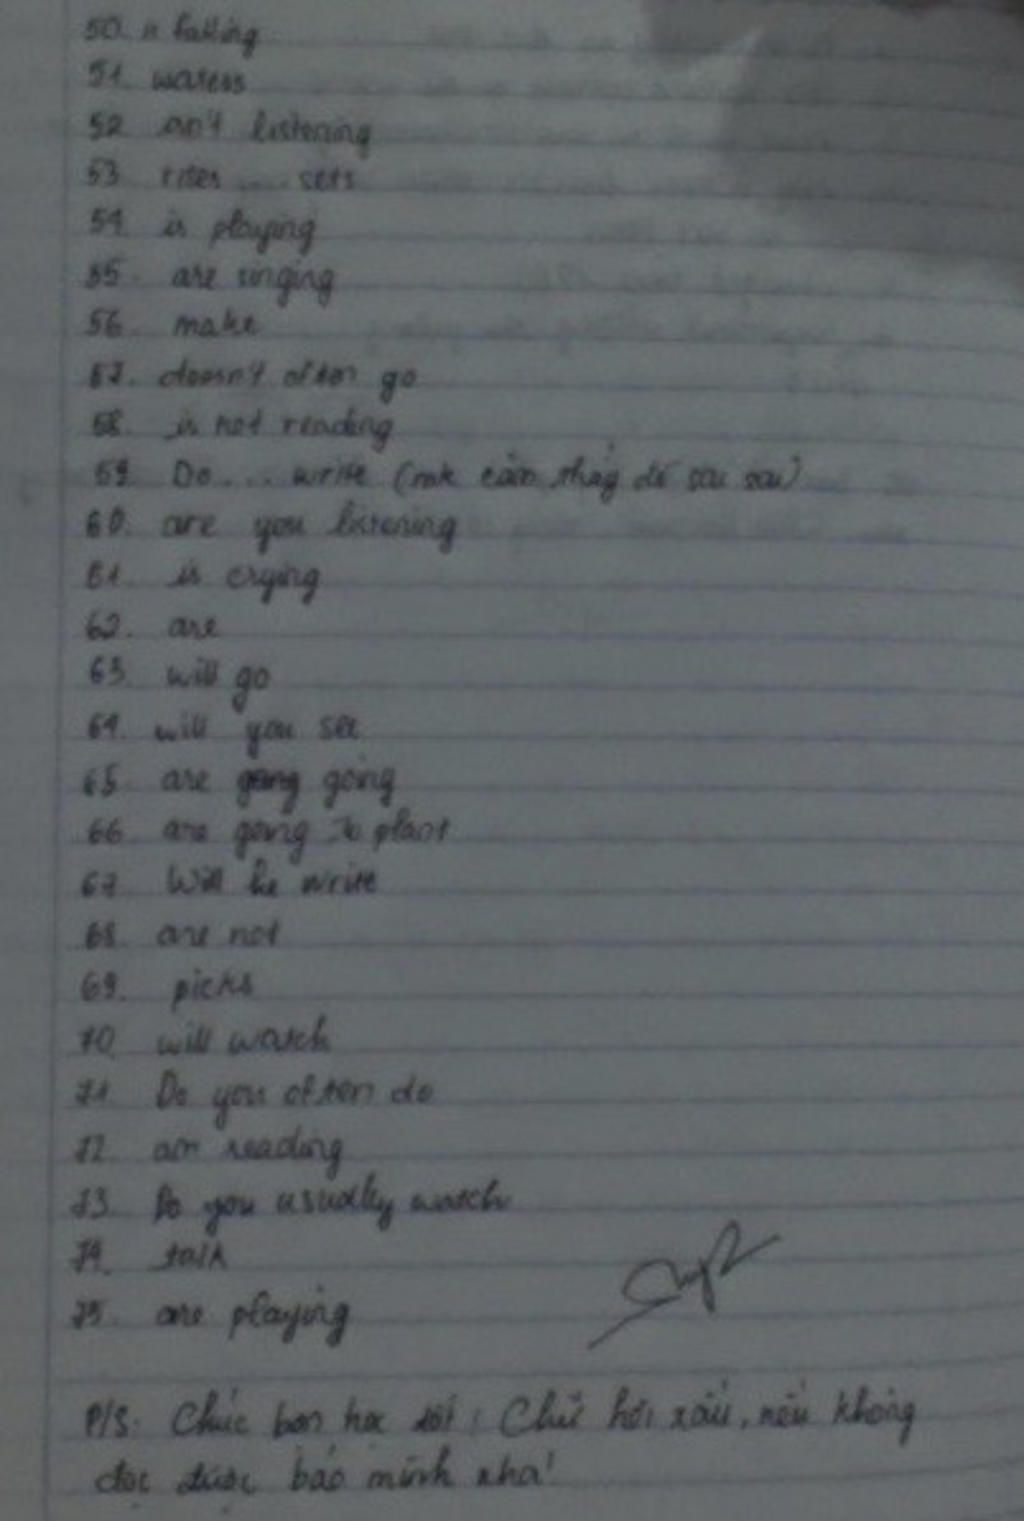 50. is falling
51. waters
52 isn't listening
53 rises .... sets
54 is playing
55. are singing
56. make
57. doesn't often go
58. is not reading
59. Do .... write (mk cảm thấy đề sai sai)
60. are you listening
61 is crying
62. are
63. will go
64. will you see
65 are going
66 are going to plant
67 Will he write
68. are not
69. picks
70 will watch
71. Do you often do
72. am reading
73 Do you usually watch
74. talk
75. are playing
P/S: Chúc bạn học tốt! Chữ hơi xấu, nếu không
đọc được bảo mình nha!